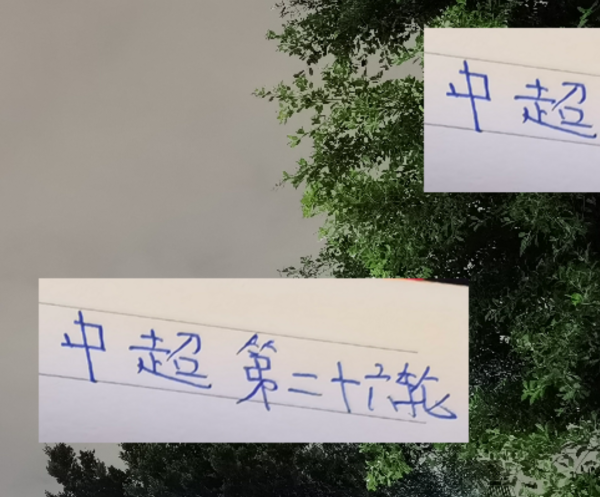 中超
中超第二十六轮